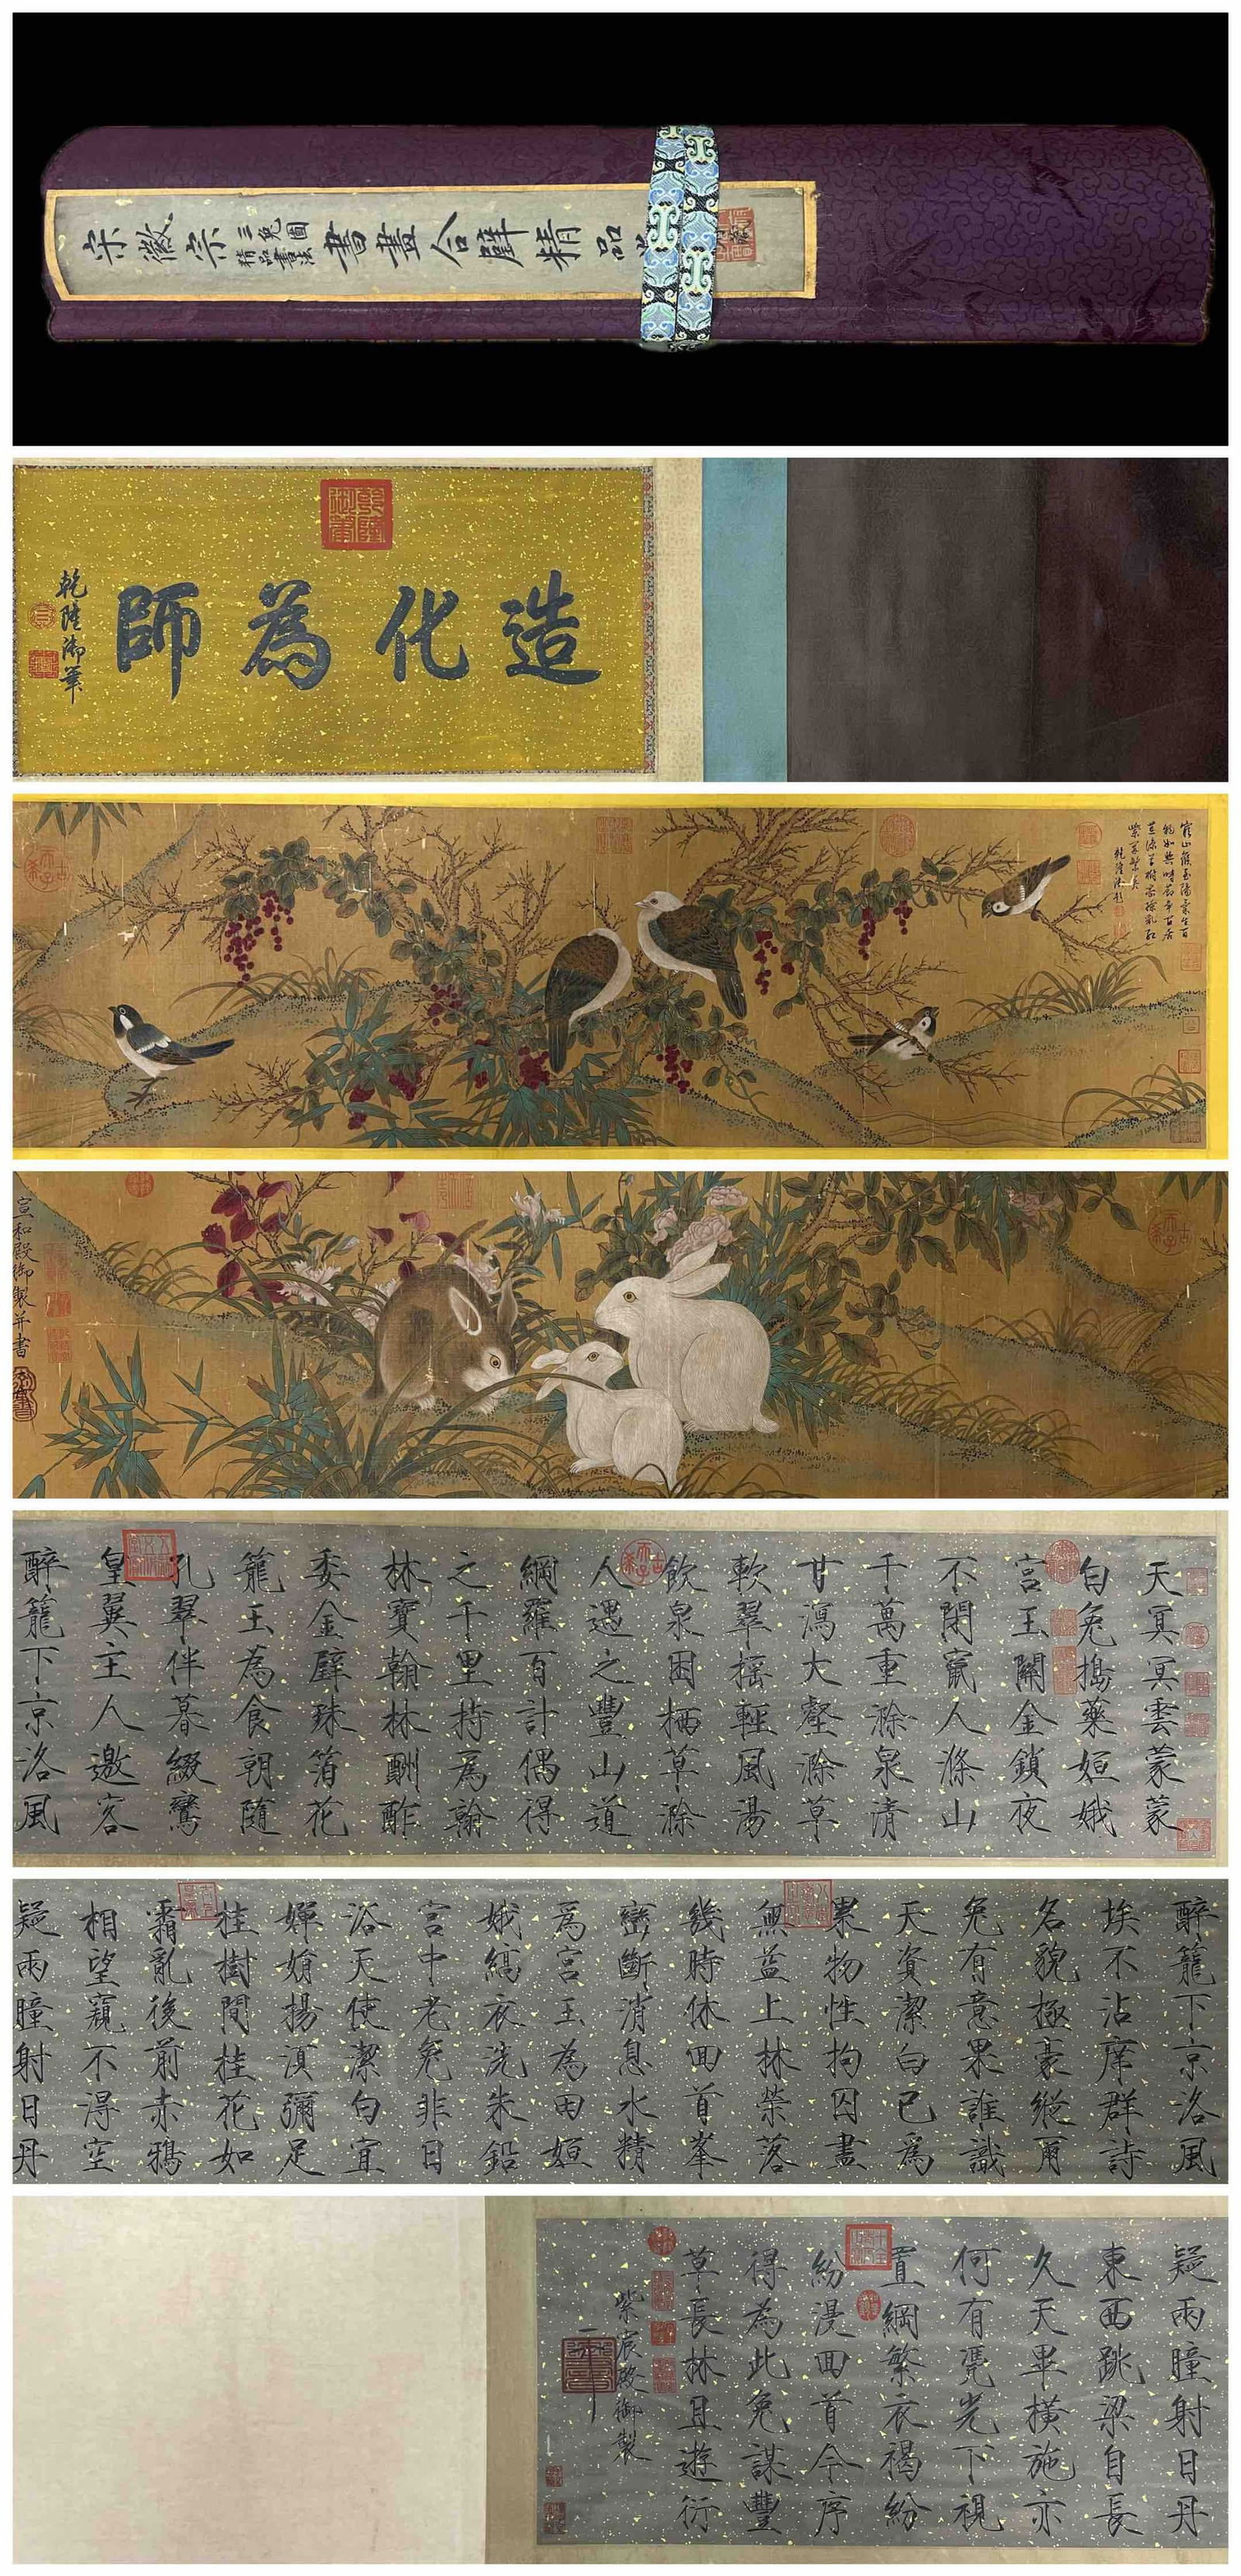 宋徽宗三兔圖精品書法書畫合璧精品
造化為師
乾隆御筆
乾隆御筆
古希天子
乾隆御題
古希天子
宣和殿御製并書
天冥冥雲蒙蒙
白兔搗藥姮娥
宫玉關金鎖夜
不閉竄人滁山
千萬重滁泉清
甘瀉大壑滁草
軟翠摇輕風湯
飲泉困栖草滁
人遇之豐山道
網羅百計偶得
之千里持爲翰
林寶翰林酬酢
委金璧珠箔花
籠玉為食朝隨
孔翠伴暮綴鸞
皇翼主人邀客
醉籠下京洛風
古希天子
醉籠下京洛風
埃不沾席群詩
名貌極豪縱爾
兔有意果誰識
天資潔白已爲
累物性拘囚盡
無益上林榮落
幾時休回首峯
巒斷消息水精
爲宫玉為田姮
娥縞衣洗朱鉛
宫中老兔非日
浴天使潔白宜
嬋娟揚湏彌足
桂樹間桂花如
霜亂後前赤鴉
相望窺不得空
疑兩瞳射日丹
疑兩瞳射日丹
東西跳梁自長
久天畢横施亦
何有凴光下視
置網繁衣褐紛
紛漫回首今序
得為此兔謀豐
草長林且遊衍
紫宸殿御製